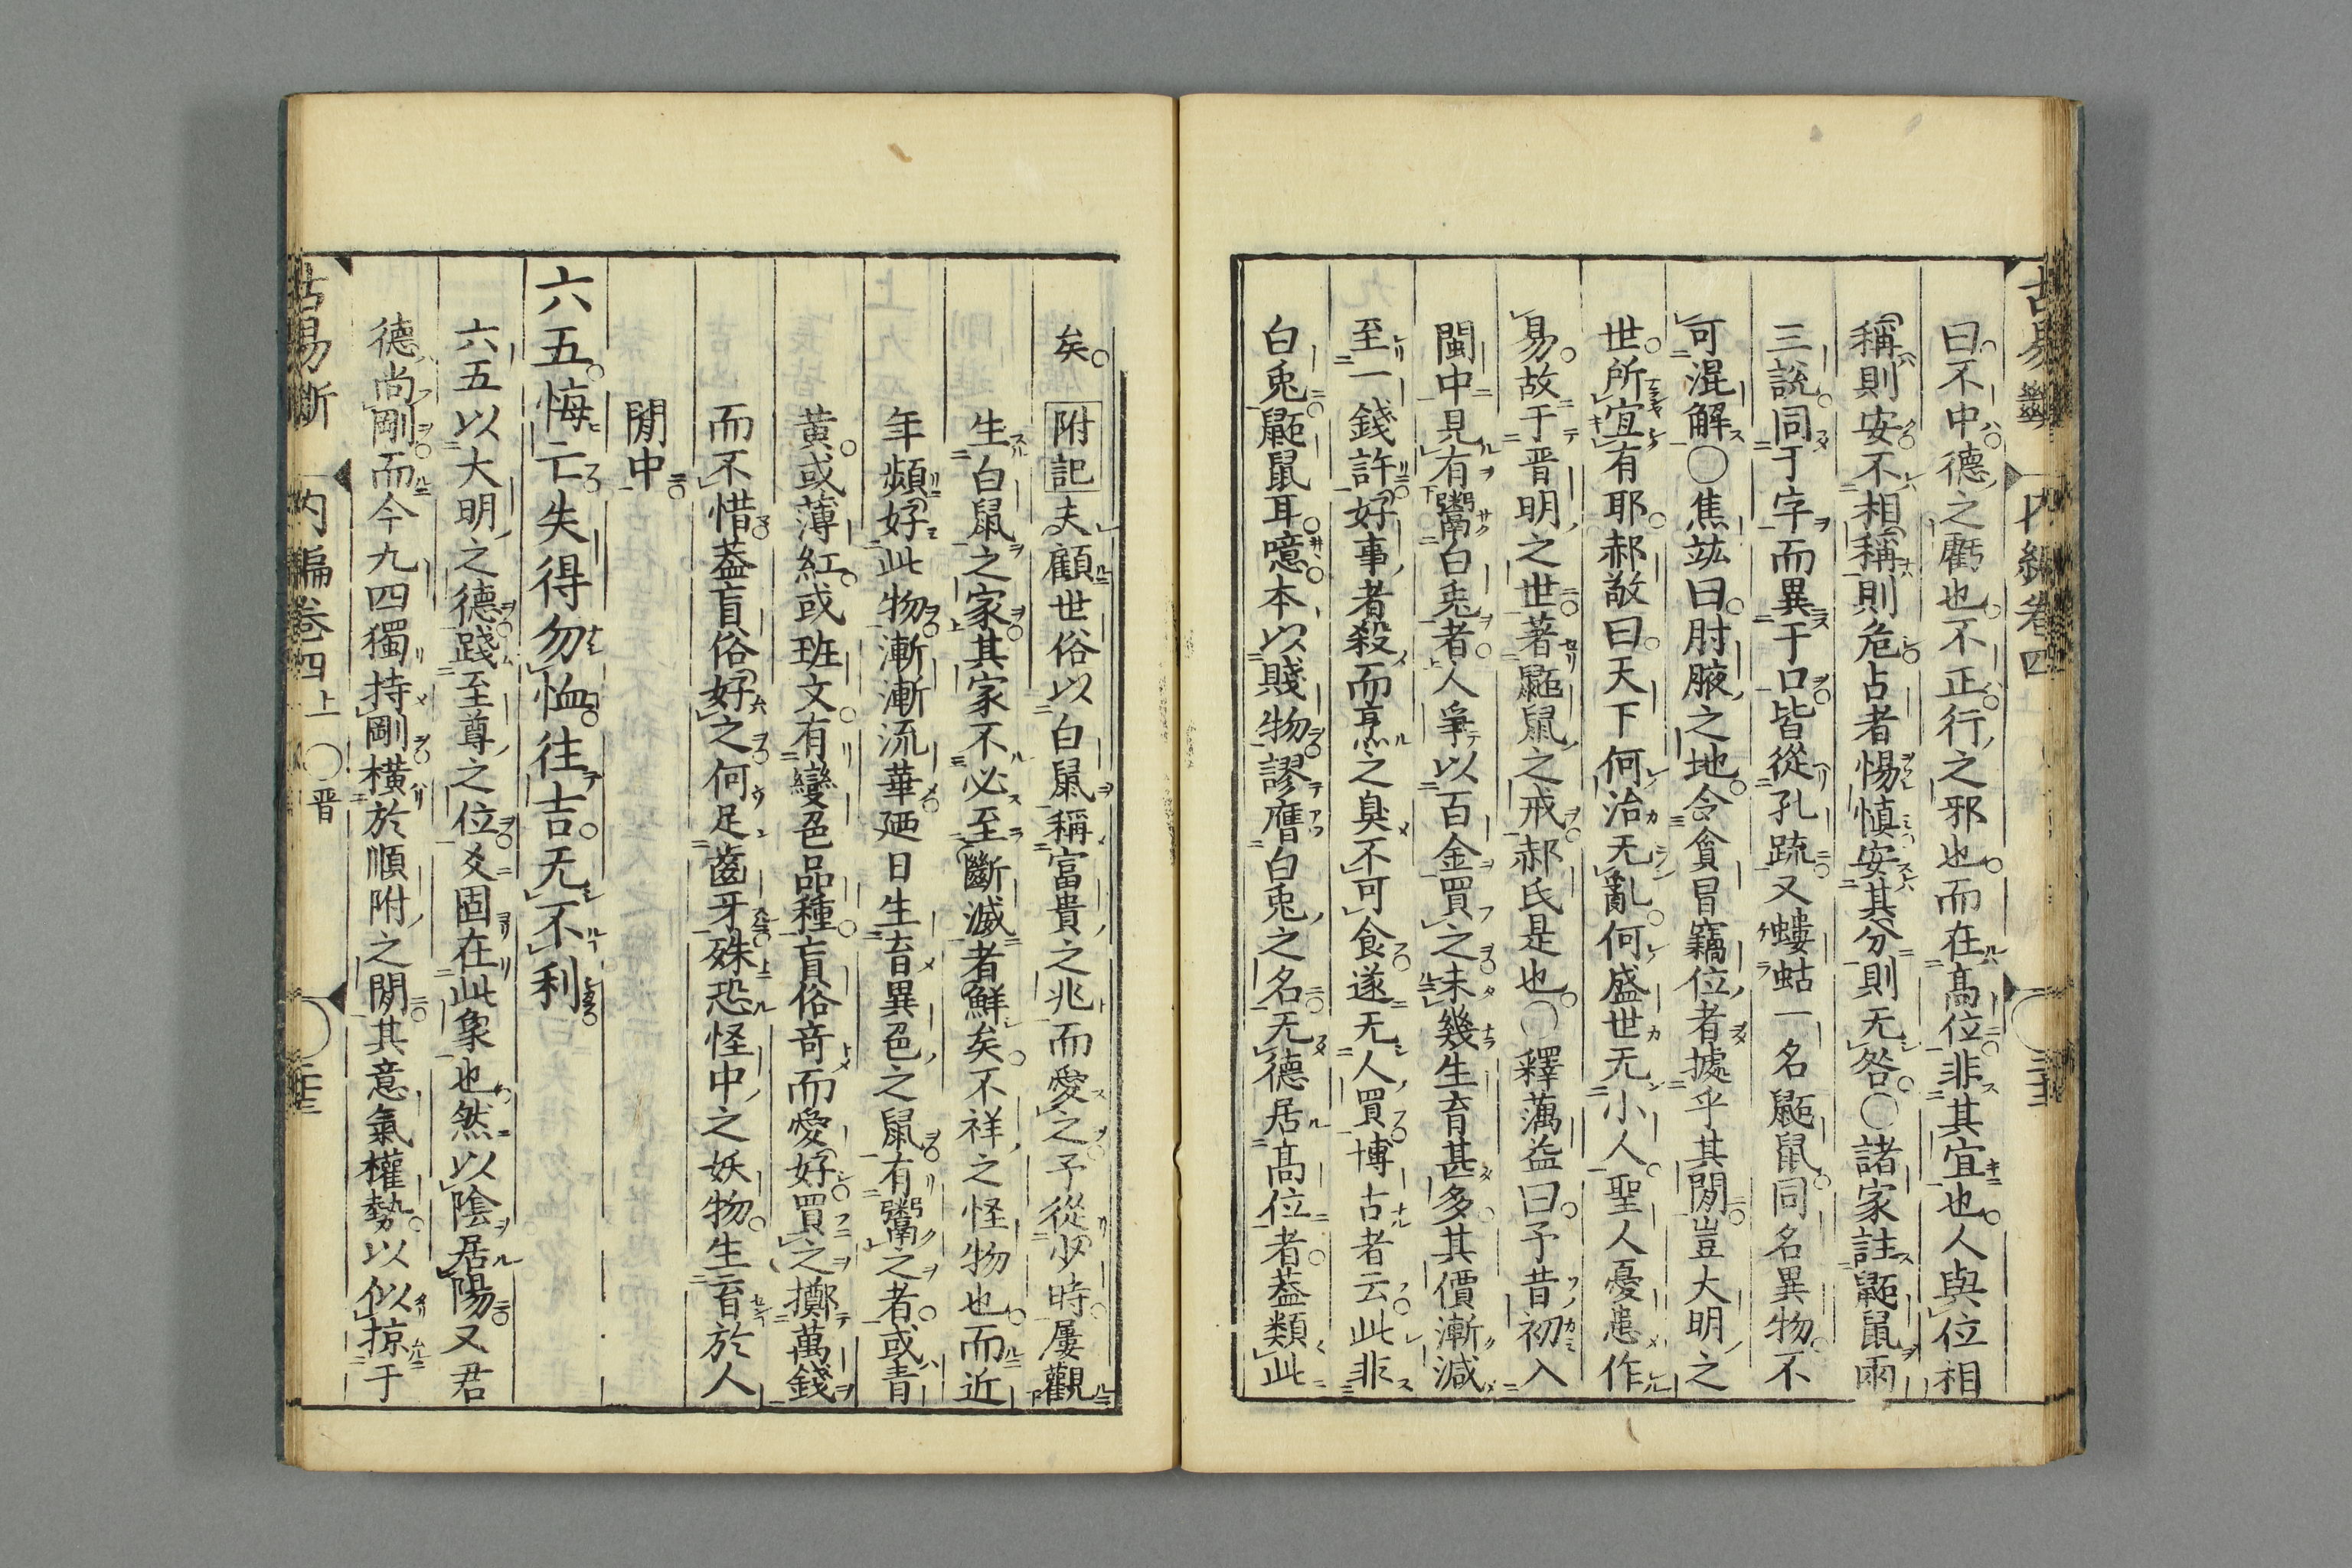 曰不中德之虧也不正行之邪也而在高位非其宜也人與位相
稱則安不相稱則危占者惕慎安其分則无咎○諸家註鼫鼠雨
三說同于字而異于口皆從孔疏又螻蛄一名鼫鼠同名異物不
可混解○焦竑曰肘腋之地令貪冒竊位者據乎其閒豈大明之
世所宜有耶郝敬曰天下何治无亂何盛世无小人聖人憂患作
易故于晋明之世著鼫鼠之戒郝氏是也○釋藕益曰予昔初入
閩中見有鬻白兎者人爭以百金買之未幾生育甚多其價漸減
至一錢許好事者殺而烹之臭不可食遂无人買博古者云此非
白兎鼫鼠耳噫本以賤物謬膺白兎之名无德居高位者葢類此
矣 附記 夫顧世俗以白鼠稱富貴之兆而愛之予從少時屢觀
生白鼠之家其家不必至斷滅者鮮矣不祥之怪物也而近
年頻好此物漸漸流華廼日生育異色之鼠有鬻之者或青
黄或薄紅或班文有變色品種盲俗奇而愛好買之擲萬錢
而不惜葢盲俗好之何足齒牙殊恐怪中之妖物生育於人
閒中
六五悔亡失得勿恤往吉无不利
六五以大明之德踐至尊之位爻固在此象也然以陰居陽又君
德尚剛而今九四獨持剛橫於順附之閒其意氣權勢以似掠于
古易斷 内編卷四上 ○晋